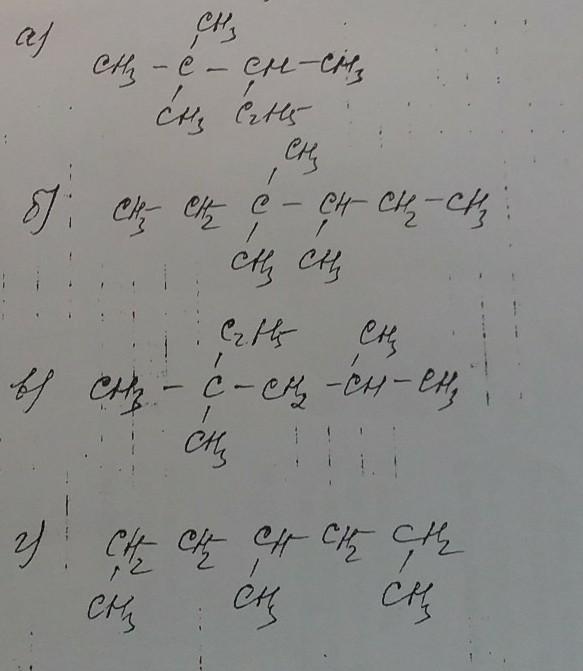 а) CH3
CH3 - C - CH - CH3
CH3 C2H5
CH3
б) CH3 - CH2 C - CH - CH2 - CH3
CH3 CH3
C2H5 CH3
в) CH3 - C - CH2 - CH - CH3
CH3
г) CH2 - CH2 - CH - CH2 - CH2
CH3 CH3 CH3